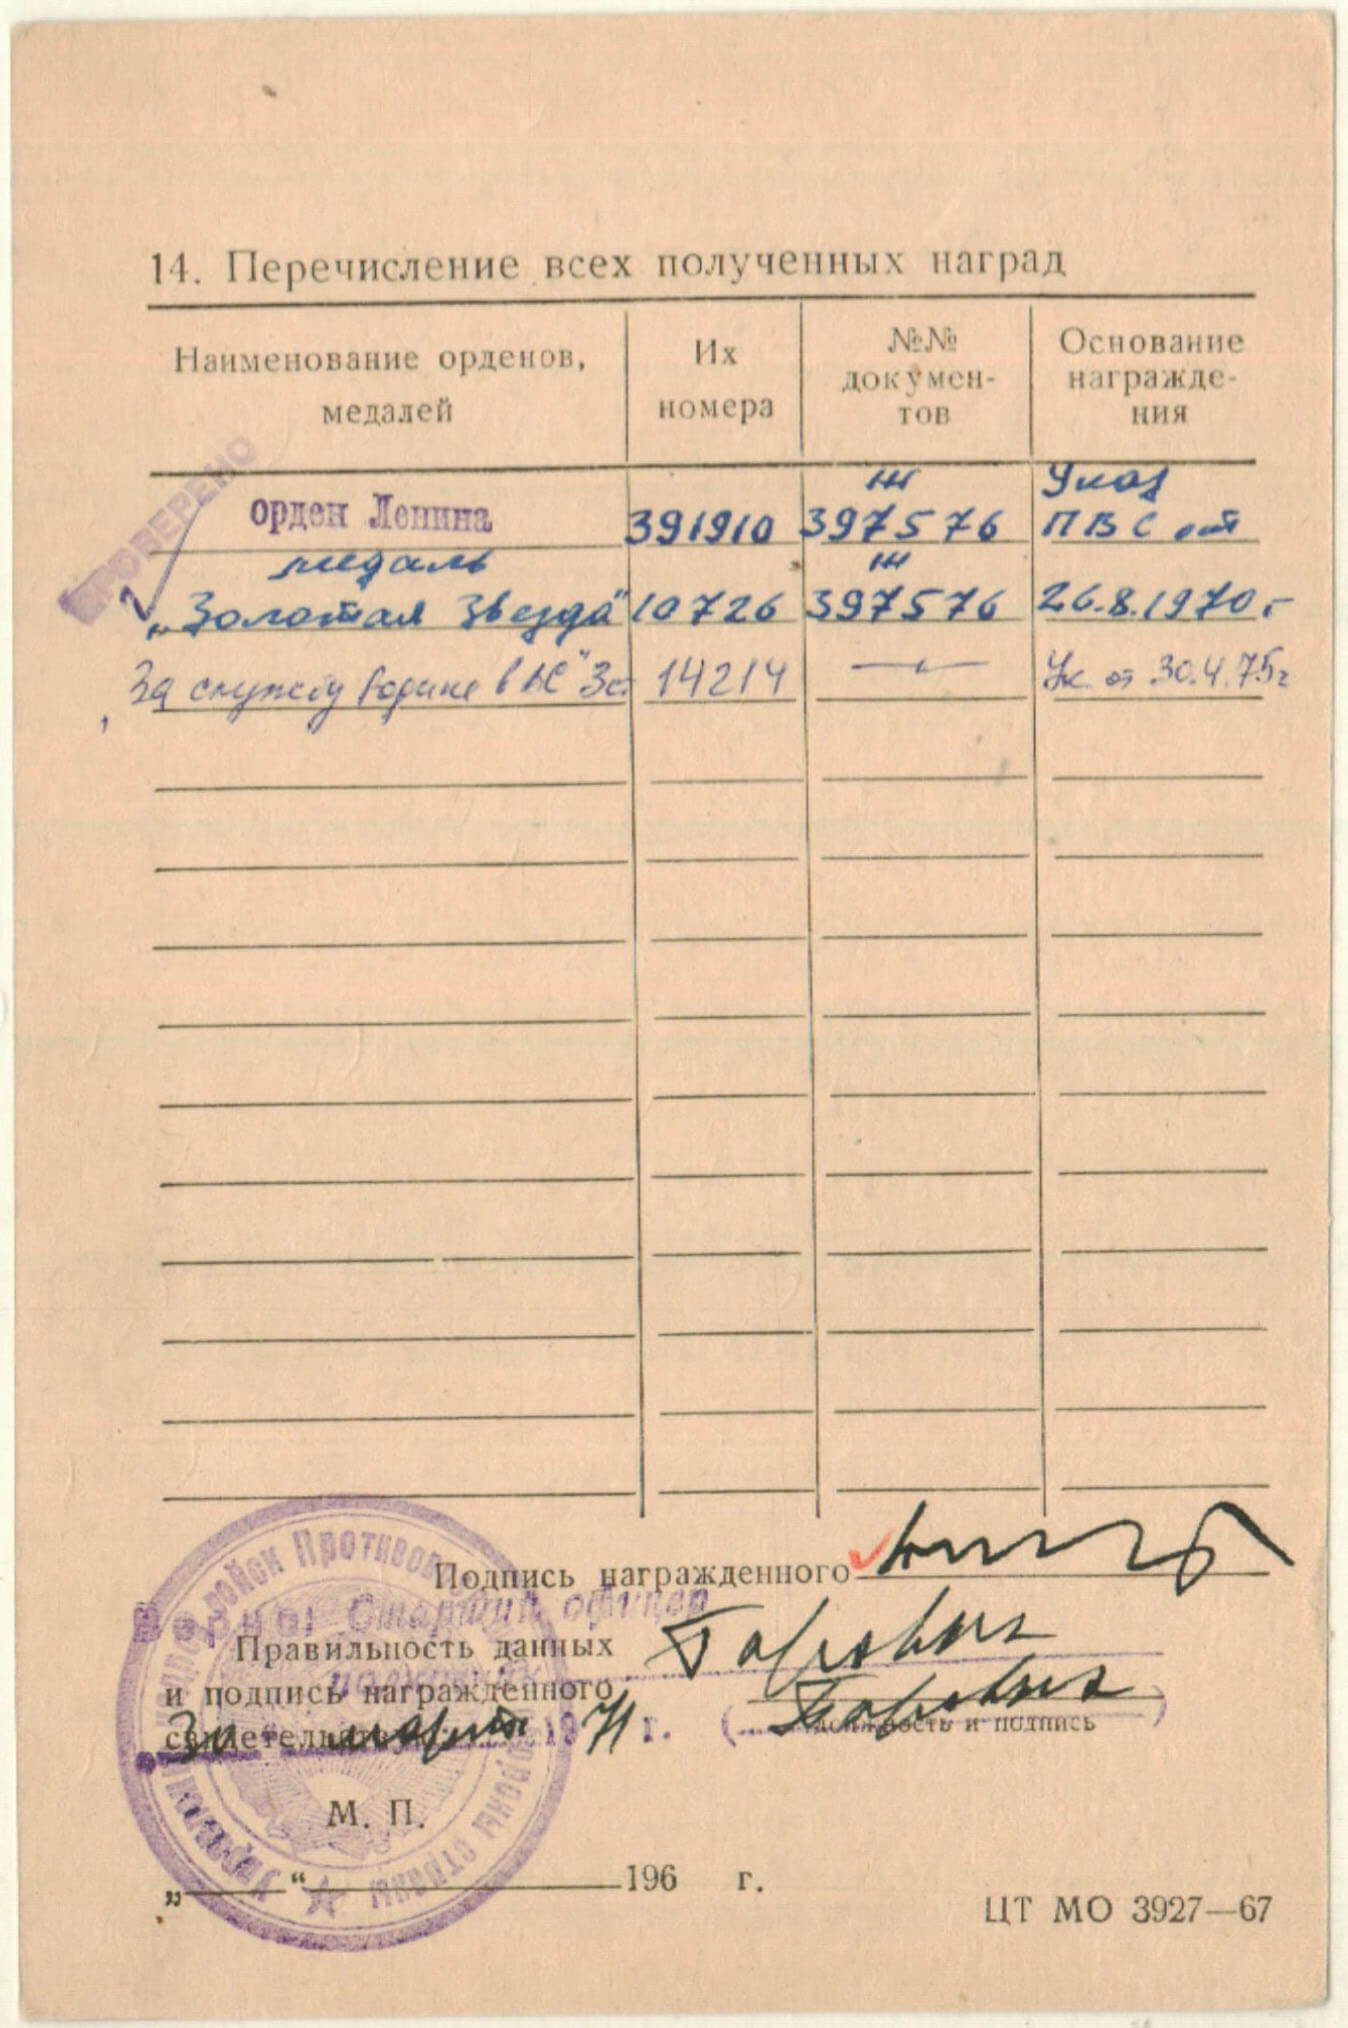 14. Перечисление всех полученных наград
Наименование орденов, медалей
Их номера
№№ докумен-
тов
Основание
награжде-
ния
ПРОВЕРЕНО
Ж
Указ
орден Ленина 391910 397576 ПВС от
медаль Ж
„Золотая Звезда" 10726 397576 26.8.1970 г
За службу Родине в ВС" 3 ст 14214 — Ук. от 30.4.75г
Подпись награжденного
Верны Старший офицер
Правильность данных
и подпись награжденного
свидетельствую
30 марта 1971 г. (
должность и подпись
)
М. П.
„ “ 196 г.
ЦТ МО 3927—67
Управлен
войск Противо
обороны страны